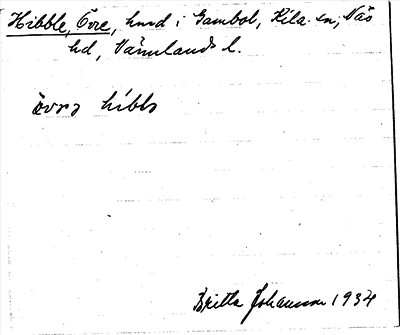 Hibble, Övre, hmd i Gambol, Kila sn, Näs
hd, Värmlands l.
övrə hiblə
Britta Johansson 1934